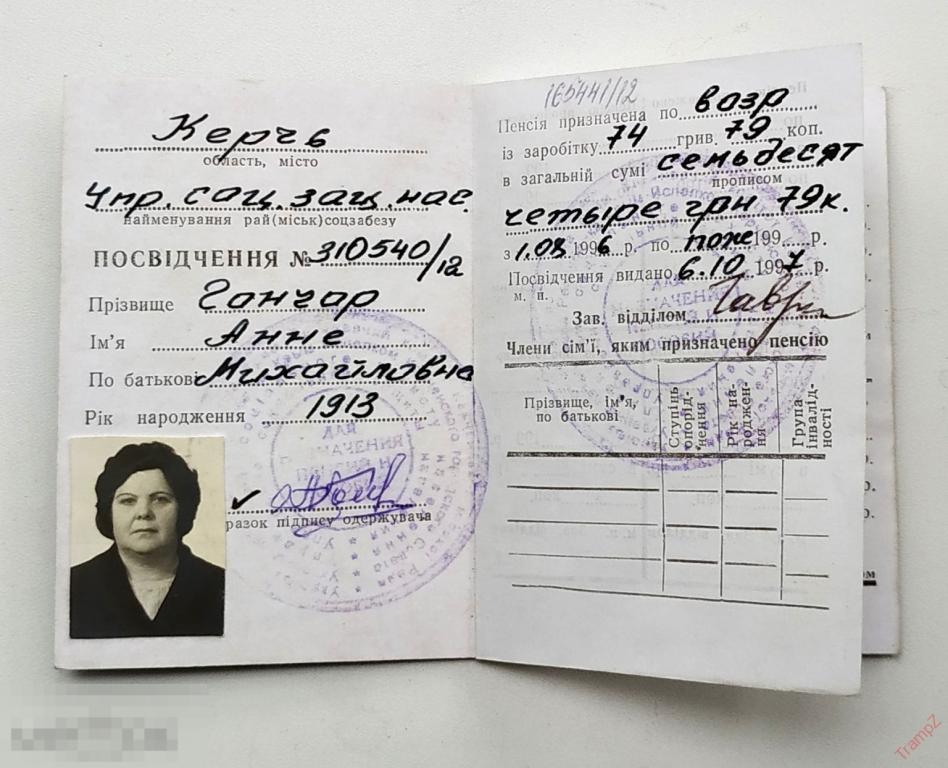 Керчь
область, місто
Упр. соц. защ. нас.
найменування рай(міськ)соцзабезу
ПОСВІДЧЕННЯ № 310540/12
Прізвище Ганчар
Ім'я Анне
По батькові Михайловне
Рік народження 1913
ДЛЯ
✓
разок підпису одержувача
165441/12
Пенсія призначена по возр
із заробітку 74 грив. 79 коп.
в загальній сумі семьдесят
прописом
четыре грн 79к.
з 1.03 1996 р. по пож 199 р.
Посвідчення видано 6.10 1997 р.
м. п.
Зав. відділом
Члени сім'ї, яким призначено пенсію
Прізвище, ім'я, по батькові
Ступінь споріднення
Рік народження
Група інвалідності
TrampZ